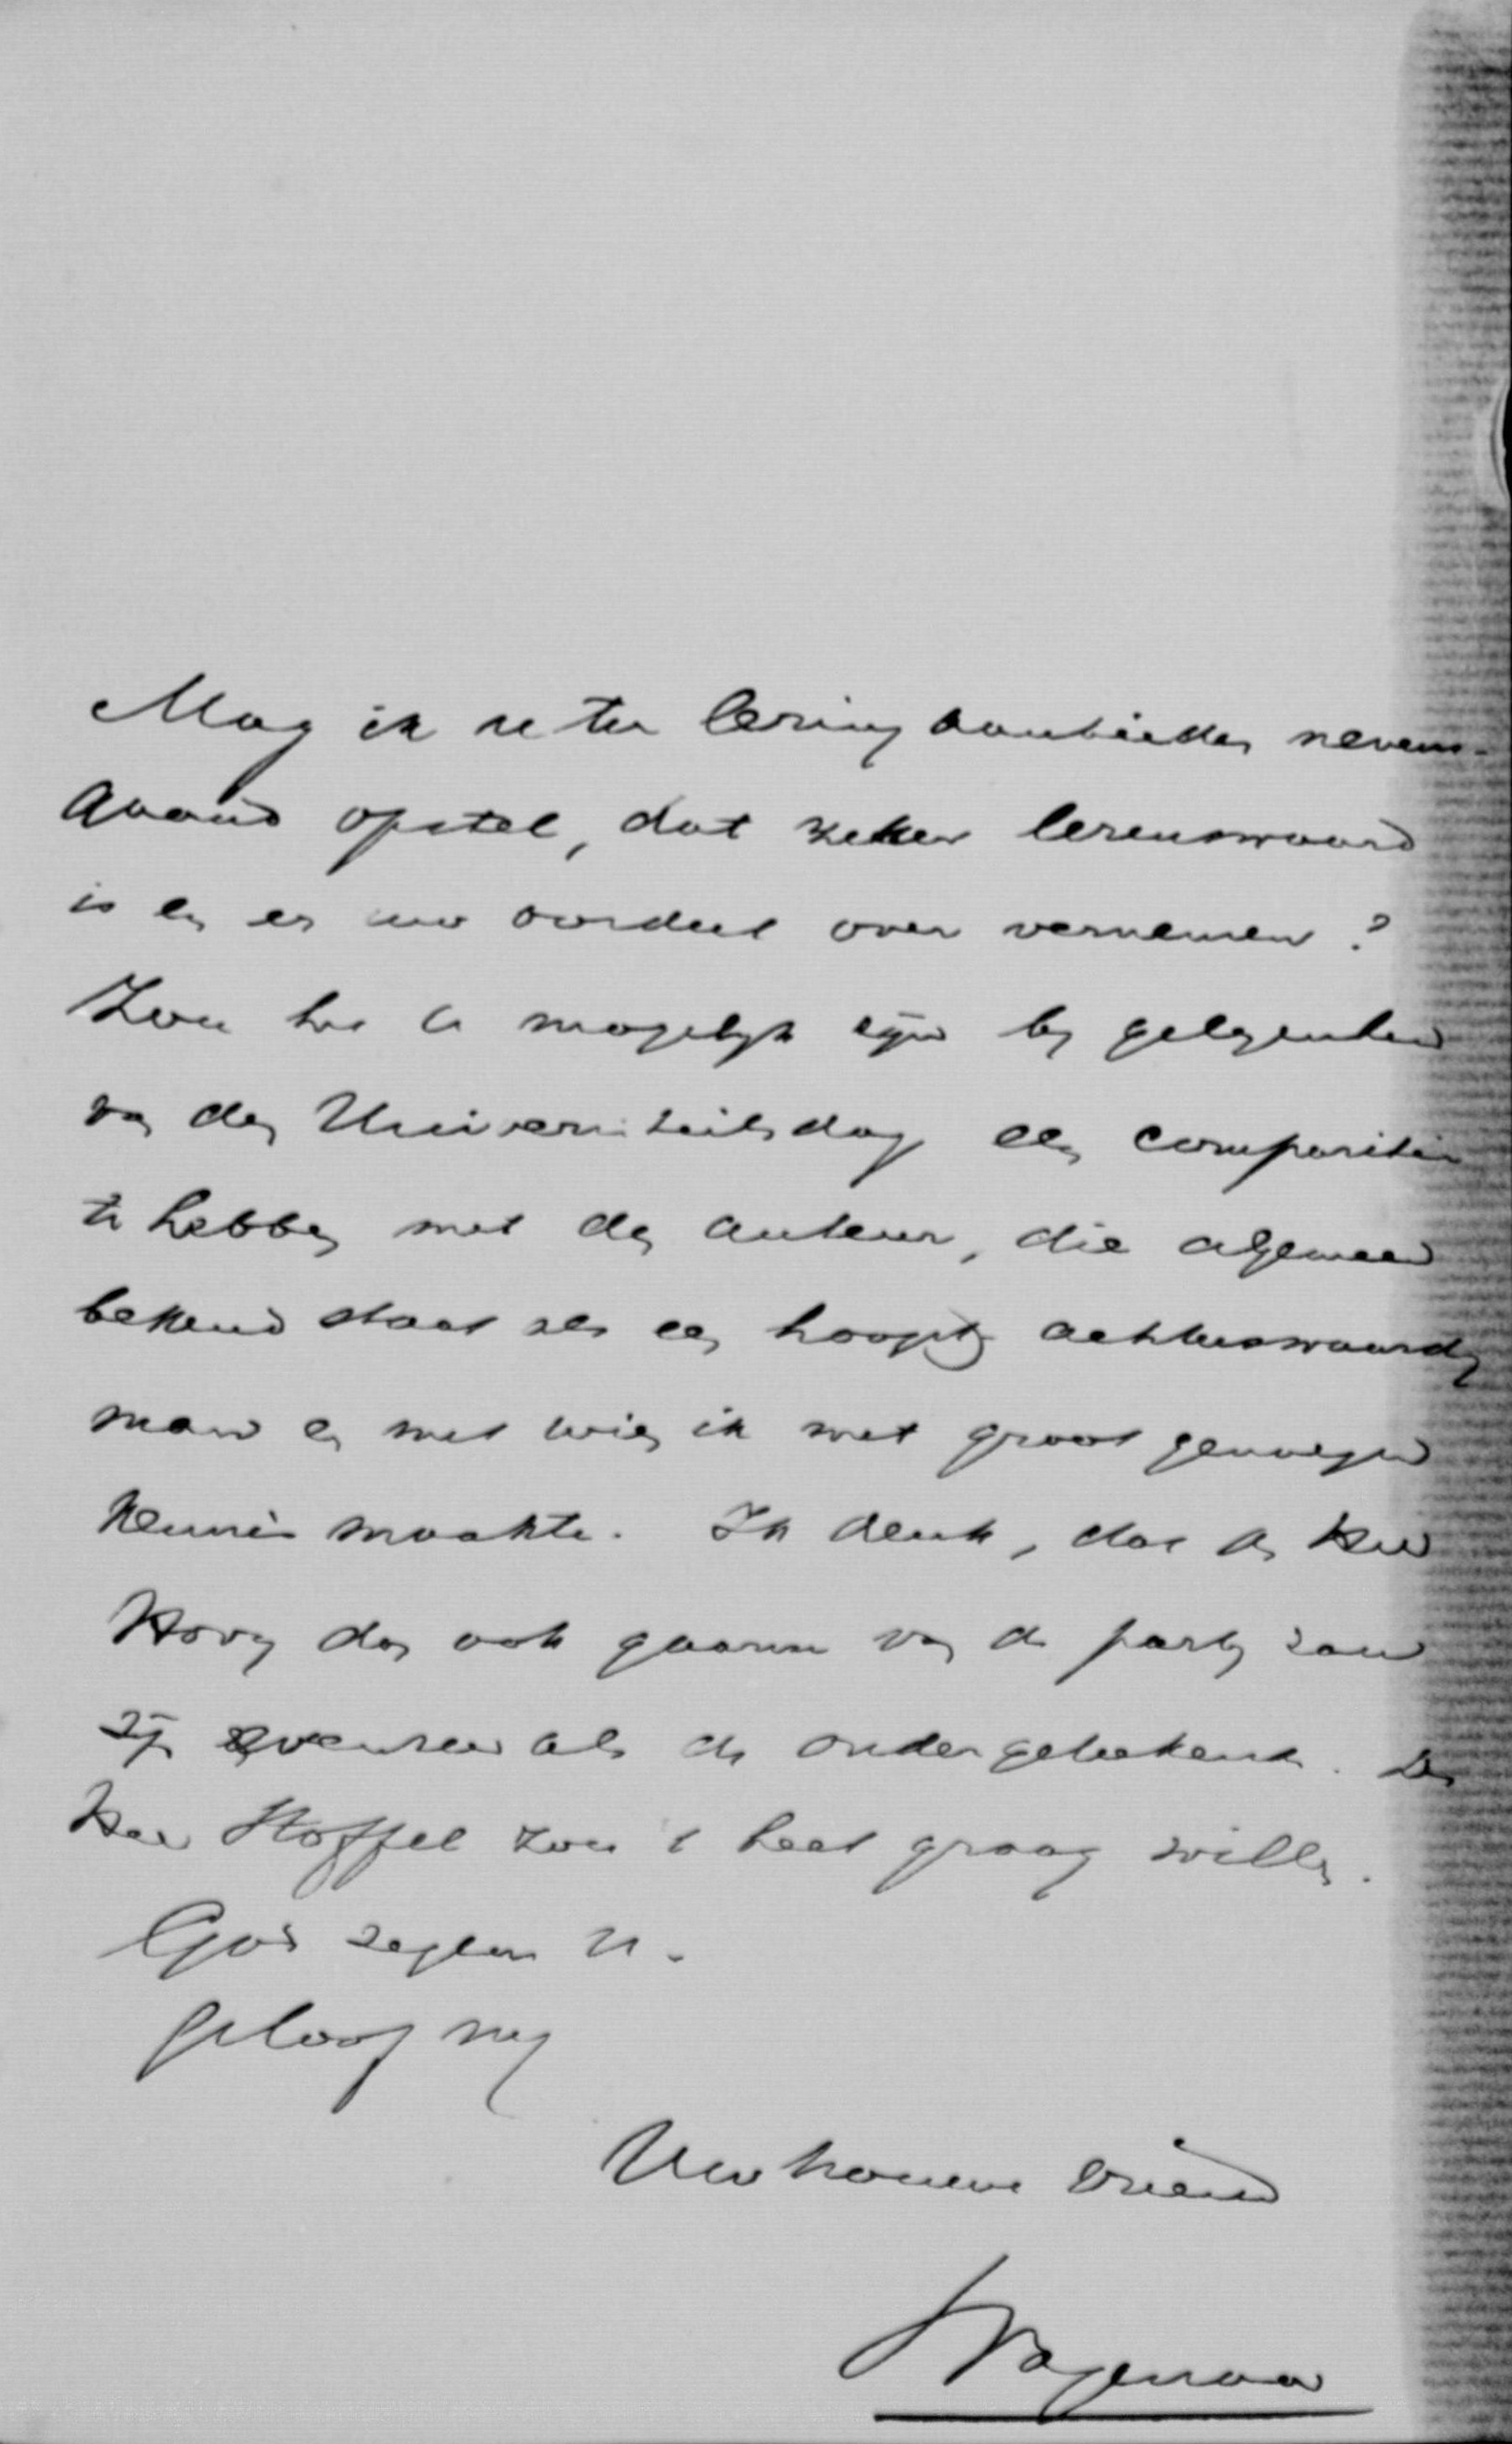 Mag ik u ter lezing aanbieden nevens-
gaand opstel, dat zeker lezenswaard
is en er uw oordeel over vernemen?
Zou het U mogelijk zijn bij gelegenheid
van den Universiteitsdag een comparitie
te hebben met den auteur, die algemeen
bekend staat als een hoogst achtenswaardig
man en met wien ik met groot genoegen
kennis maakte. Ik denk, dat de heer
Hovy dan ook gaarne van de partij zou
zijn evenzeer als de ondergeteekende. De
Heer Stoffel zou 't heel graag willen.
God zegene U.
Geloof mij
Uw trouwe vriend
Wagenaar